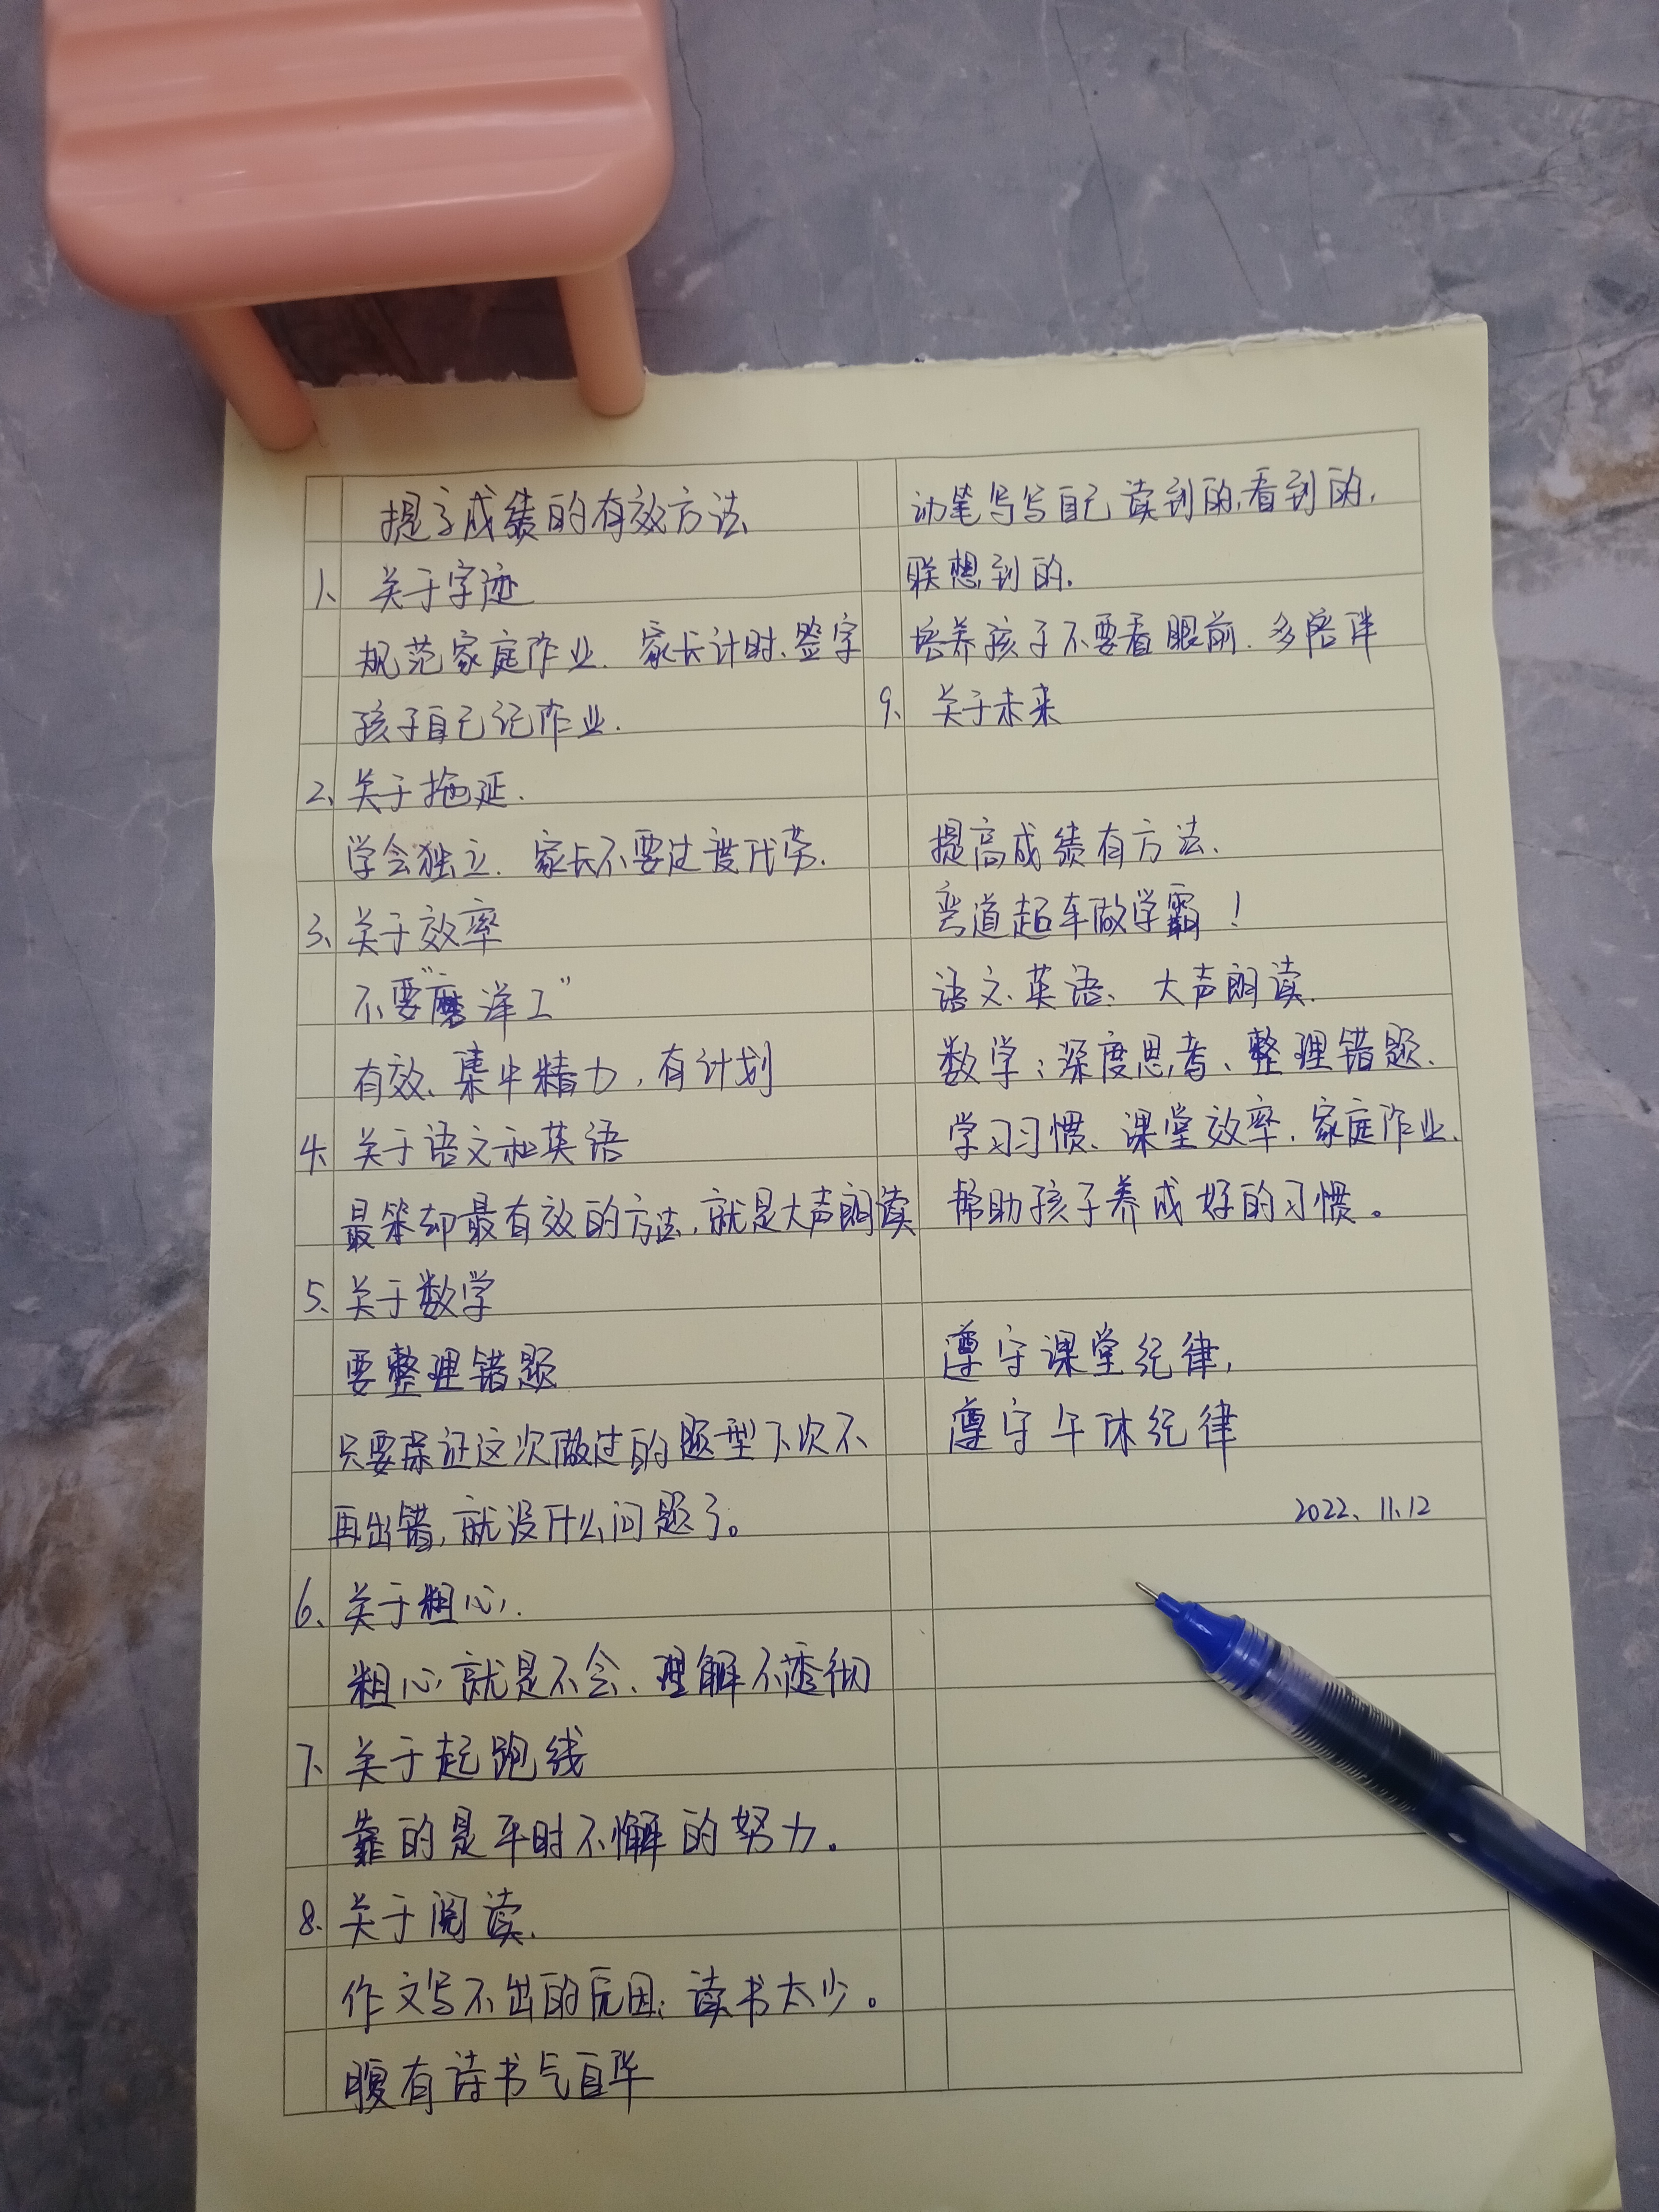 提高成绩的有效方法
1、关于字迹
规范家庭作业.家长计时、签字
孩子自己记作业.
2、关于拖延.
学会独立.家长不要过度代劳.
3、关于效率
不要“磨洋工”
有效、集中精力,有计划
4、关于语文和英语
最笨却最有效的方法,就是大声朗读
5、关于数学
要整理错题
只要保证这次做过的题型下次不
再出错,就没什么问题了。
6、关于粗心.
粗心就是不会、理解不透彻
7、关于起跑线
靠的是平时不懈的努力。
8、关于阅读.
作文写不出的原因:读书太少。
腹有诗书气自华
动笔写写自己读到的,看到的,
联想到的.
培养孩子不要看眼前.多陪伴
9、关于未来
提高成绩有方法.
弯道超车做学霸!
语文、英语、大声朗读.
数学:深度思考、整理错题.
学习习惯、课堂效率.家庭作业.
帮助孩子养成好的习惯。
遵守课堂纪律,
遵守午休纪律
2022、11.12